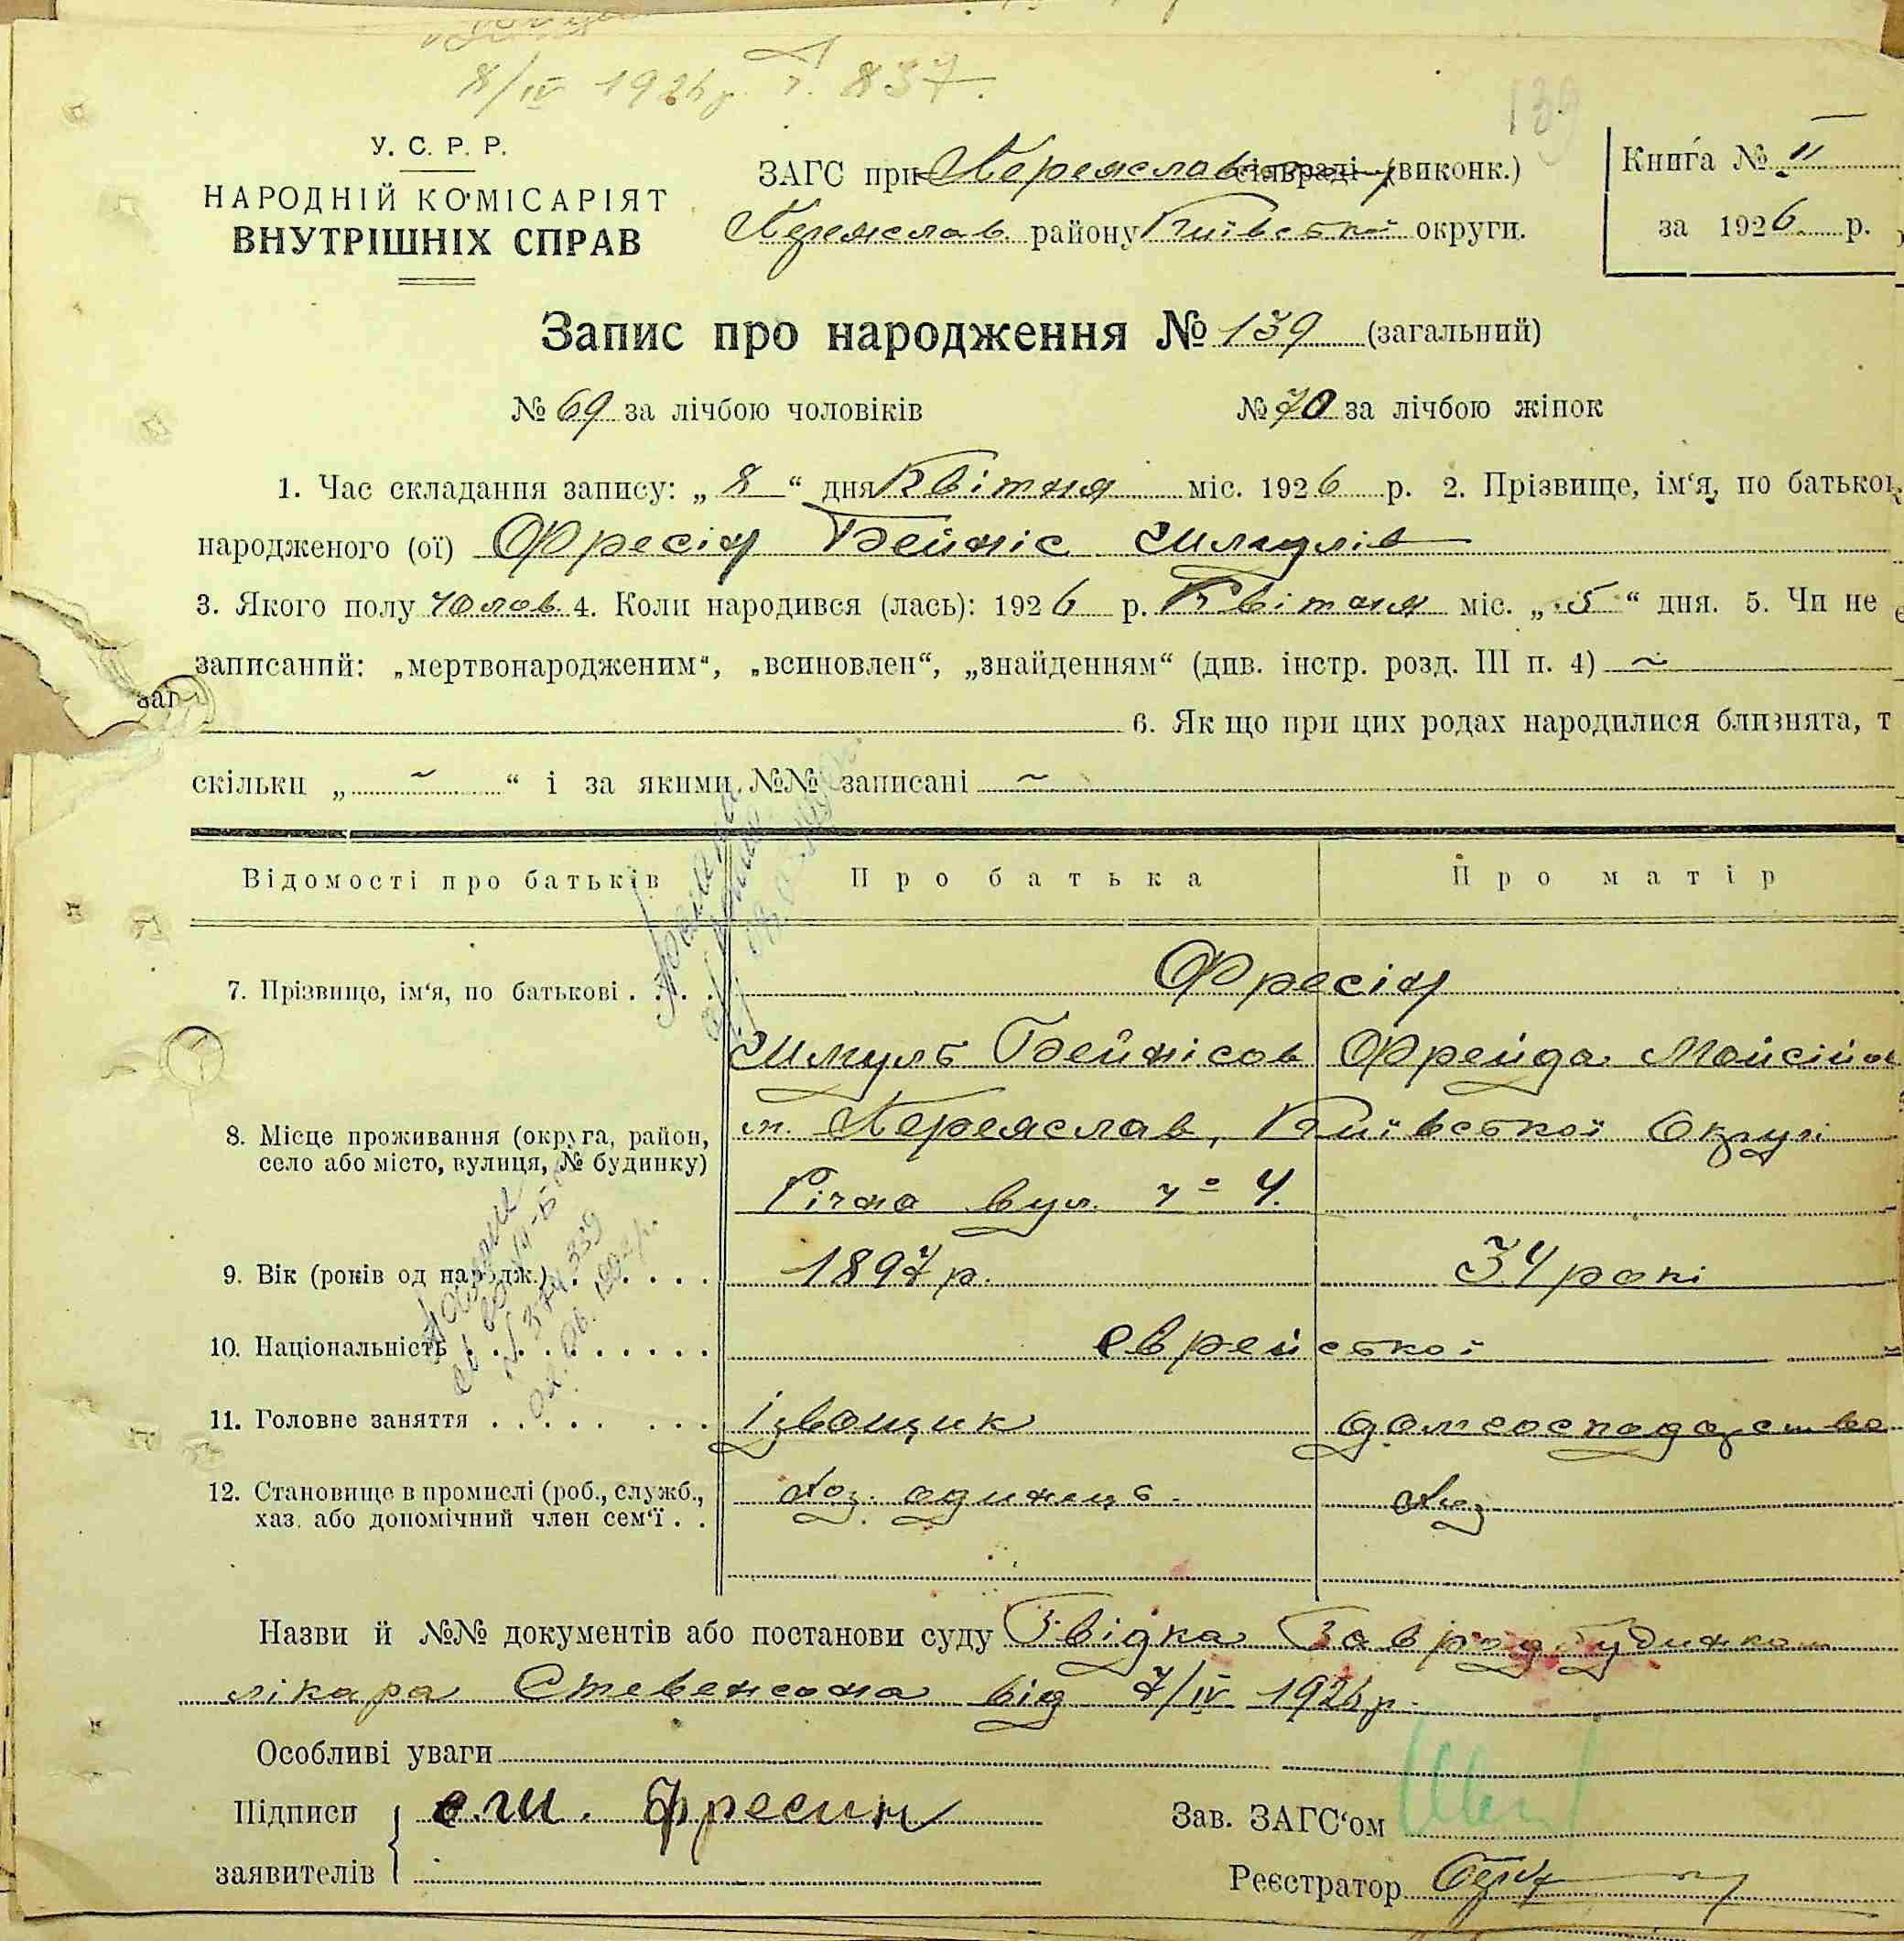 8/IV 1926 р. 837.
139
У. С. Р. Р.
НАРОДНІЙ КОМІСАРІЯТ
ВНУТРІШНІХ СПРАВ
ЗАГС при Переяслав сільраді (виконк.)
Переяслав району Київської округи.
Книга № II
за 1926 р.
Запис про народження № 139 (загальний)
№ 69 за лічбою чоловіків № 70 за лічбою жінок
1. Час складання запису: „ 8 “ дня Квітня міс. 1926 р. 2. Прізвище, ім‘я, по батькові
народженого (ої) Фресін Бейніс Шмулів
3. Якого полу чолов. 4. Коли народився (лась): 1926 р. Квітня міс. „ 5 “ дня. 5. Чи не
записаний: „мертвонародженим“, „всиновлен“, „знайденням“ (див. інстр. розд. III п. 4) ~
6. Як що при цих родах народилися близнята, т
скільки „ ~ “ і за якими №№ записані ~
Відомості про батьків Про батька Про матір
7. Прізвище, ім‘я, по батькові . . . . Фресін
Шмуль Бейнісов Фрейда Мойсійов
8. Місце проживання (округа, район,
село або місто, вулиця, № будинку)
м. Переяслав, Київської Округи
Річна вул. № 4.
9. Вік (років од народж.) . . . . . . 1897 р. 34 рокі
10. Національність . . . . . . . . . . єврейської
11. Головне заняття . . . . . . . . ізвощик домгосподарство
12. Становище в промислі (роб., служб.,
хаз. або допомічний член сем‘ї . .
Хоз. одинець. Хоз
Назви й №№ документів або постанови суду Звідка Зав род будинком
лікара Стевенсона від 7/IV 1926 р.
Особливі уваги
Підписи
заявителів
Ш. Фресин
Зав. ЗАГС‘ом
Реєстратор